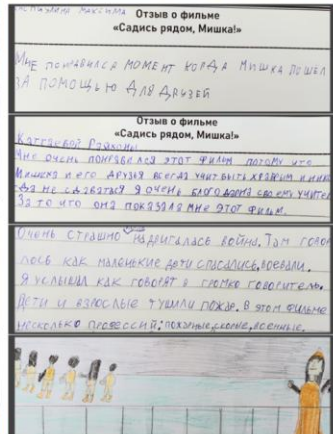 Максима
Отзыв о фильме
«Садись рядом, Мишка!»
Мне понравился момент когда Мишка пошёл
за помощью для друзей
Отзыв о фильме
«Садись рядом, Мишка!»
Каттаевой Райхоны
Мне очень понравелся этот фильм потому что
Мишка и его друзья всегда учит быть храбрым и ника
да не сдаваться я очень благодарна своему учител
За то что она показала мне этот фильм.
Очень страшно надвигалась война. Там гово
лось как маленькие дети спасались, воевали.
Я услышал как говорят в громко говоритель.
Дети и взрослые тушили пожар. В этом фильме
несколько профессий: пожарные, скорые, военные.